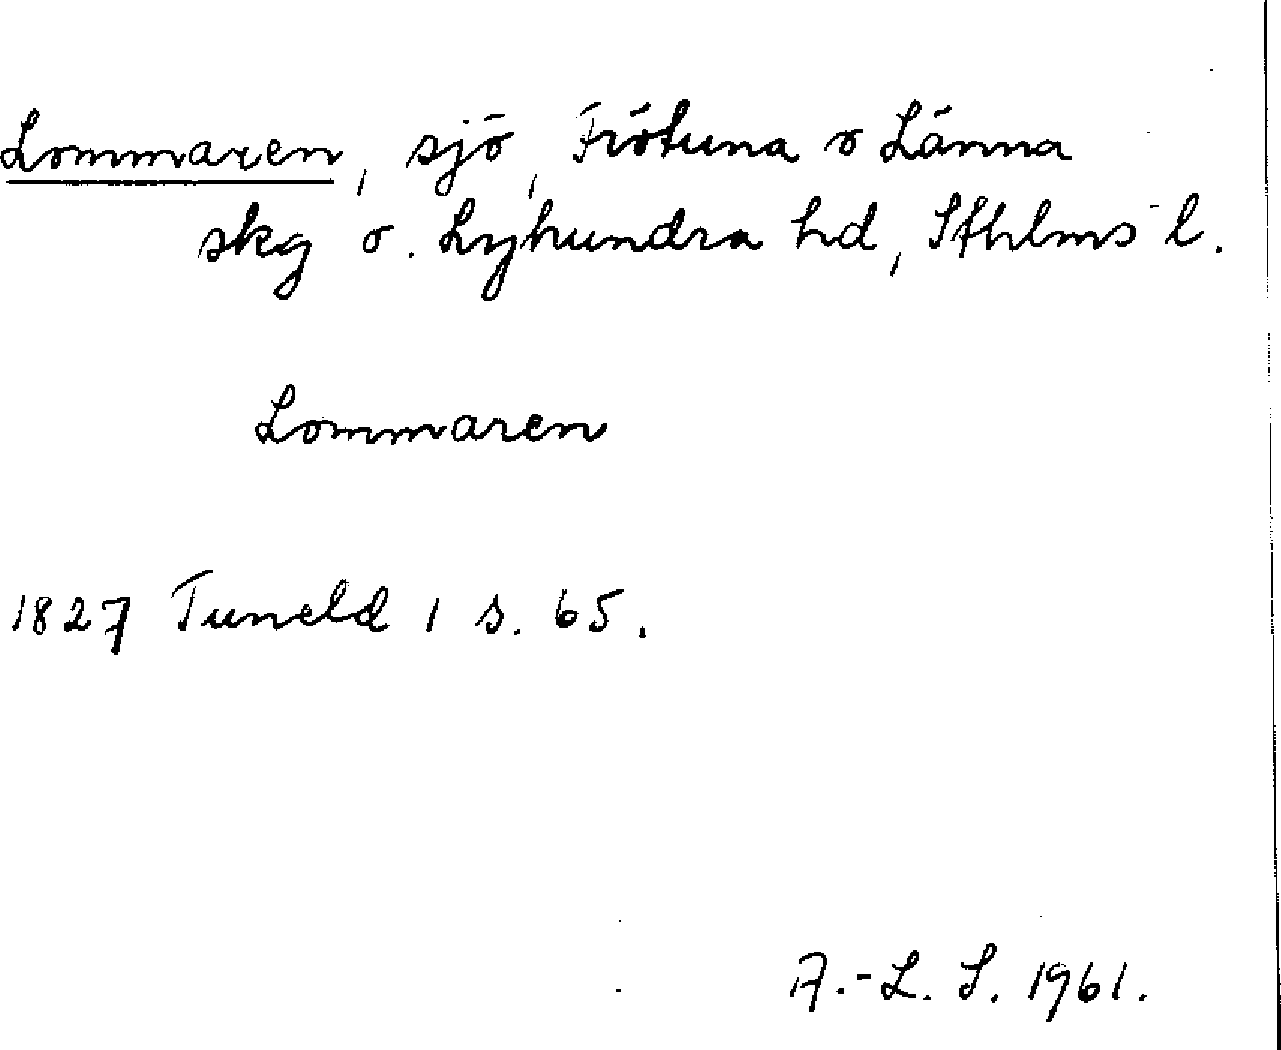 Lommaren, sjö, Frötuna o Länna
skg o. Lyhundra hd, Sthlms l.
Lommaren
1827 Tuneld 1 s. 65.
A.-L. S. 1961.